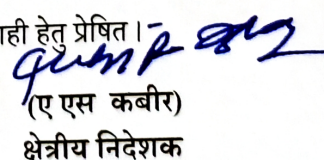 ही हेतु प्रेषित।
(ए एस कबीर)
क्षेत्रीय निदेशक